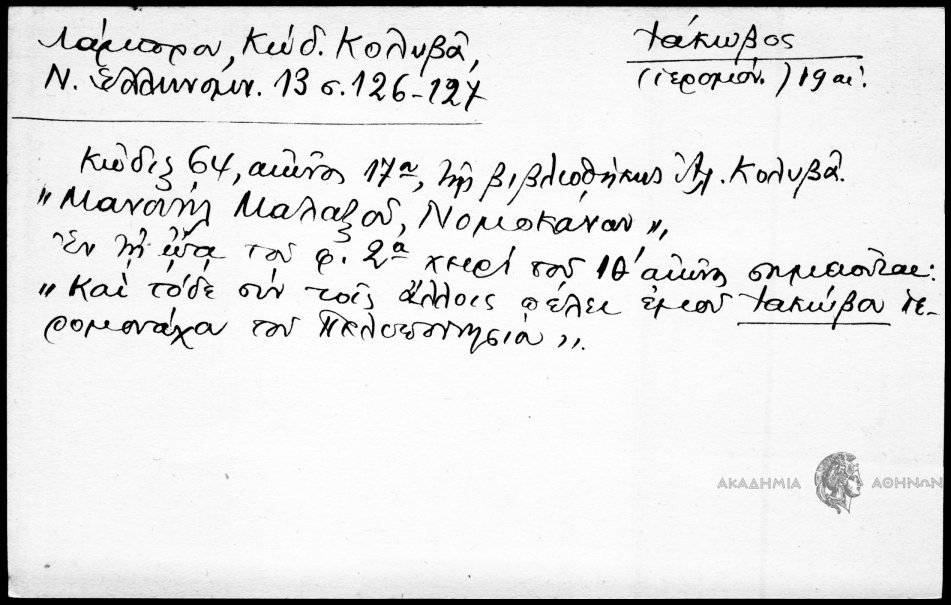 Λάμπρου, Κώδ. Κολυβᾶ,
Ν. Ἑλληνομν. 13 σ. 126-127
Ἰάκωβος
(ἱερομόν.) 19 αἰ.
Κώδιξ 64, αἰῶνος 17ου, τῆς βιβλιοθήκης Ἀλ. Κολυβᾶ.
"Μανουὴλ Μαλαξοῦ, Νομοκάνων",
Ἐν τῇ ᾤᾳ τοῦ φ. 2α χειρὶ τοῦ ΙΘ´ αἰῶνος σημειοῦται:
"Καὶ τόδε σὺν τοῖς ἄλλοις πέλει ἐμοῦ Ἰακώβου ἱε-
ρομονάχου τοῦ Πελοποννησίου",.
ΑΚΑΔΗΜΙΑ ΑΘΗΝΩΝ